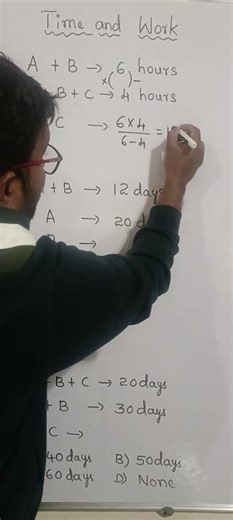 Time and Work
A + B → 6 hours
×( )−
B + C → 4 hours
C → 6×4 / 6−4 =
+ B → 12 days
A → 20
→
B + C → 20 days
+ B → 30 days
C →
40 days B) 50 days
60 days D) None